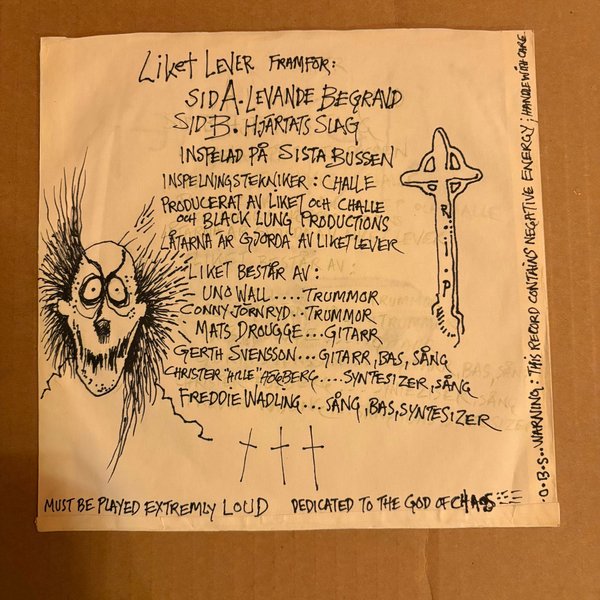 Liket Lever framför:
Sid A. Levande Begravd
Sid B. Hjärtats Slag
Inspelad på Sista Bussen
Inspelningstekniker: Challe
Producerat av Liket och Challe
och Black Lung Productions
Låtarna är gjorda av Liket Lever
Liket består av:
Uno Wall .... Trummor
Conny Jörnryd .. Trummor
Mats Drougge... Gitarr
Gerth Svensson... Gitarr, Bas, Sång
Christer "Hille" Högberg .... Syntesizer, Sång
Freddie Wadling ... Sång, Bas, Syntesizer
R.I.P
Must be played extremly loud
Dedicated to the God of Chaos
.O.B.S.. Warning: This record contains negative energy; Handle with care